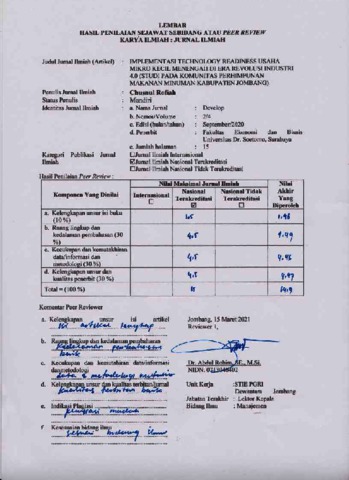 LEMBAR
HASIL PENILAIAN SEJAWAT SEBIDANG ATAU PEER REVIEW
KARYA ILMIAH : JURNAL ILMIAH
Judul Jurnal Ilmiah (Artikel) : IMPLEMENTASI TECHNOLOGY READINESS USAHA
MIKRO KECIL MENENGAH DI ERA REVOLUSI INDUSTRI
4.0 (STUDI PADA KOMUNITAS PERHIMPUNAN
MAKANAN MINUMAN KABUPATEN JOMBANG)
Penulis Jurnal Ilmiah : Chusnul Rofiah
Status Penulis : Mandiri
Identitas Jurnal Ilmiah : a. Nama Jurnal : Develop
b. Nomor/Volume : 2/4
c. Edisi (bulan/tahun) : September/2020
d. Penerbit : Fakultas Ekonomi dan Bisnis
Universitas Dr. Soetomo, Surabaya
e. Jumlah halaman : 15
Kategori Publikasi Jurnal : ☐Jurnal Ilmiah Internasional
Ilmiah ☑Jurnal Ilmiah Nasional Terakreditasi
☐Jurnal Ilmiah Nasional Tidak Terakreditasi
Hasil Penilaian Peer Review :
Komponen Yang Dinilai
Nilai Maksimal Jurnal Ilmiah
Internasional ☐
Nasional Terakreditasi ☑
Nasional Tidak Terakreditasi ☐
Nilai Akhir Yang Diperoleh
a. Kelengkapan unsur isi buku (10 %) 1.5
b. Ruang lingkup dan kedalaman pembahasan (30 %) 4.5 4.49
c. Kecukupan dan kemutakhiran data/informasi dan metodologi (30 %) 4.5
d. Kelengkapan unsur dan kualitas penerbit (30 %) 4.5
Total = (100 %) 15 14.9
Komentar Peer Reviewer
a. Kelengkapan unsur isi artikel
Isi artikel lengkap
Jombang, 15 Maret 2021
Reviewer 1,
b. Ruang lingkup dan kedalaman pembahasan
Kedalaman pembahasan
baik
c. Kecukupan dan kemutakhiran data/informasi
dan metodologi
Dr. Abdul Rohim, SE., M.Si.
NIDN.
d. Kelengkapan unsur dan kualitas terbitan/jurnal
kualitas terbitan
baik
Unit Kerja : STIE PGRI
Dewantara Jombang
Jabatan Terakhir : Lektor Kepala
Bidang Ilmu : Manajemen
e. Indikasi Plagiasi
plagiasi
f. Kesesuaian bidang ilmu
sesuai bidang ilmu